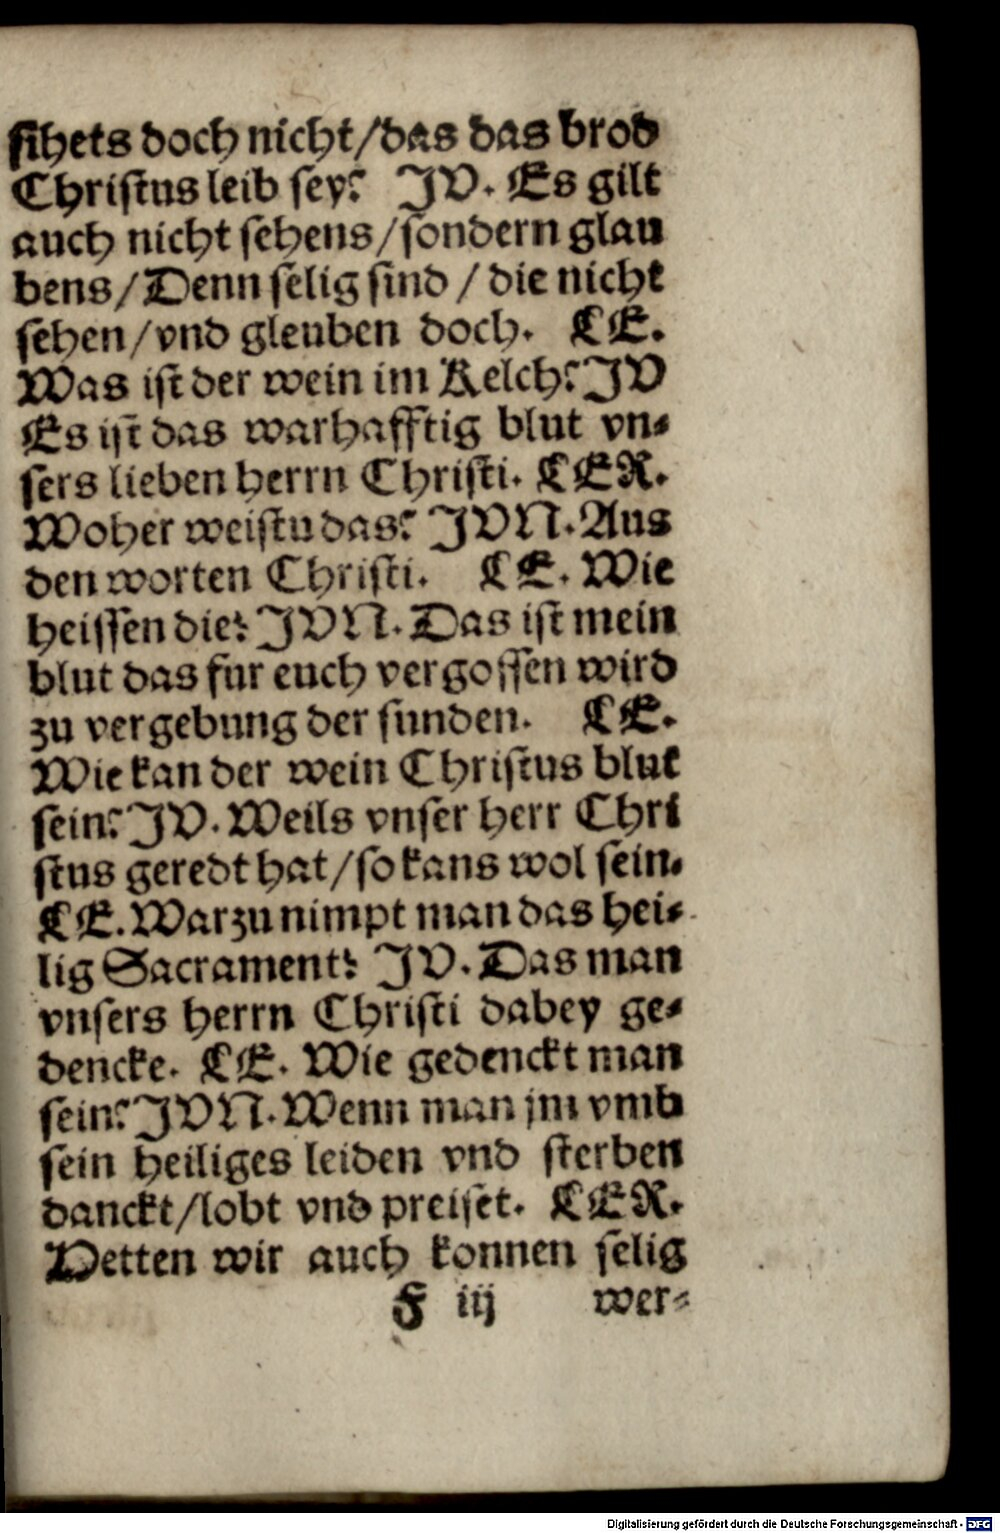 sihets doch nicht/das das brod
Christus leib sey? JV. Es gilt
auch nicht sehens/sondern glau
bens/Denn selig sind / die nicht
sehen/vnd gleuben doch. CE.
Was ist der wein im Kelch? JV
Es ist das warhafftig blut vn-
sers lieben herrn Christi. CER.
Woher weistu das? JVN. Aus
den worten Christi. CE. Wie
heissen die? JVN. Das ist mein
blut das fur euch vergossen wird
zu vergebung der sunden. CE.
Wie kan der wein Christus blut
sein? JV. Weils vnser herr Chri
stus geredt hat/so kans wol sein.
CE. Warzu nimpt man das hei-
lig Sacrament? JV. Das man
vnsers herrn Christi dabey ge-
dencke. CE. Wie gedenckt man
sein? JVN. Wenn man jm vmb
sein heiliges leiden vnd sterben
danckt/lobt vnd preiset. CER.
Hetten wir auch konnen selig
F iij wer-
Digitalisierung gefördert durch die Deutsche Forschungsgemeinschaft - DFG